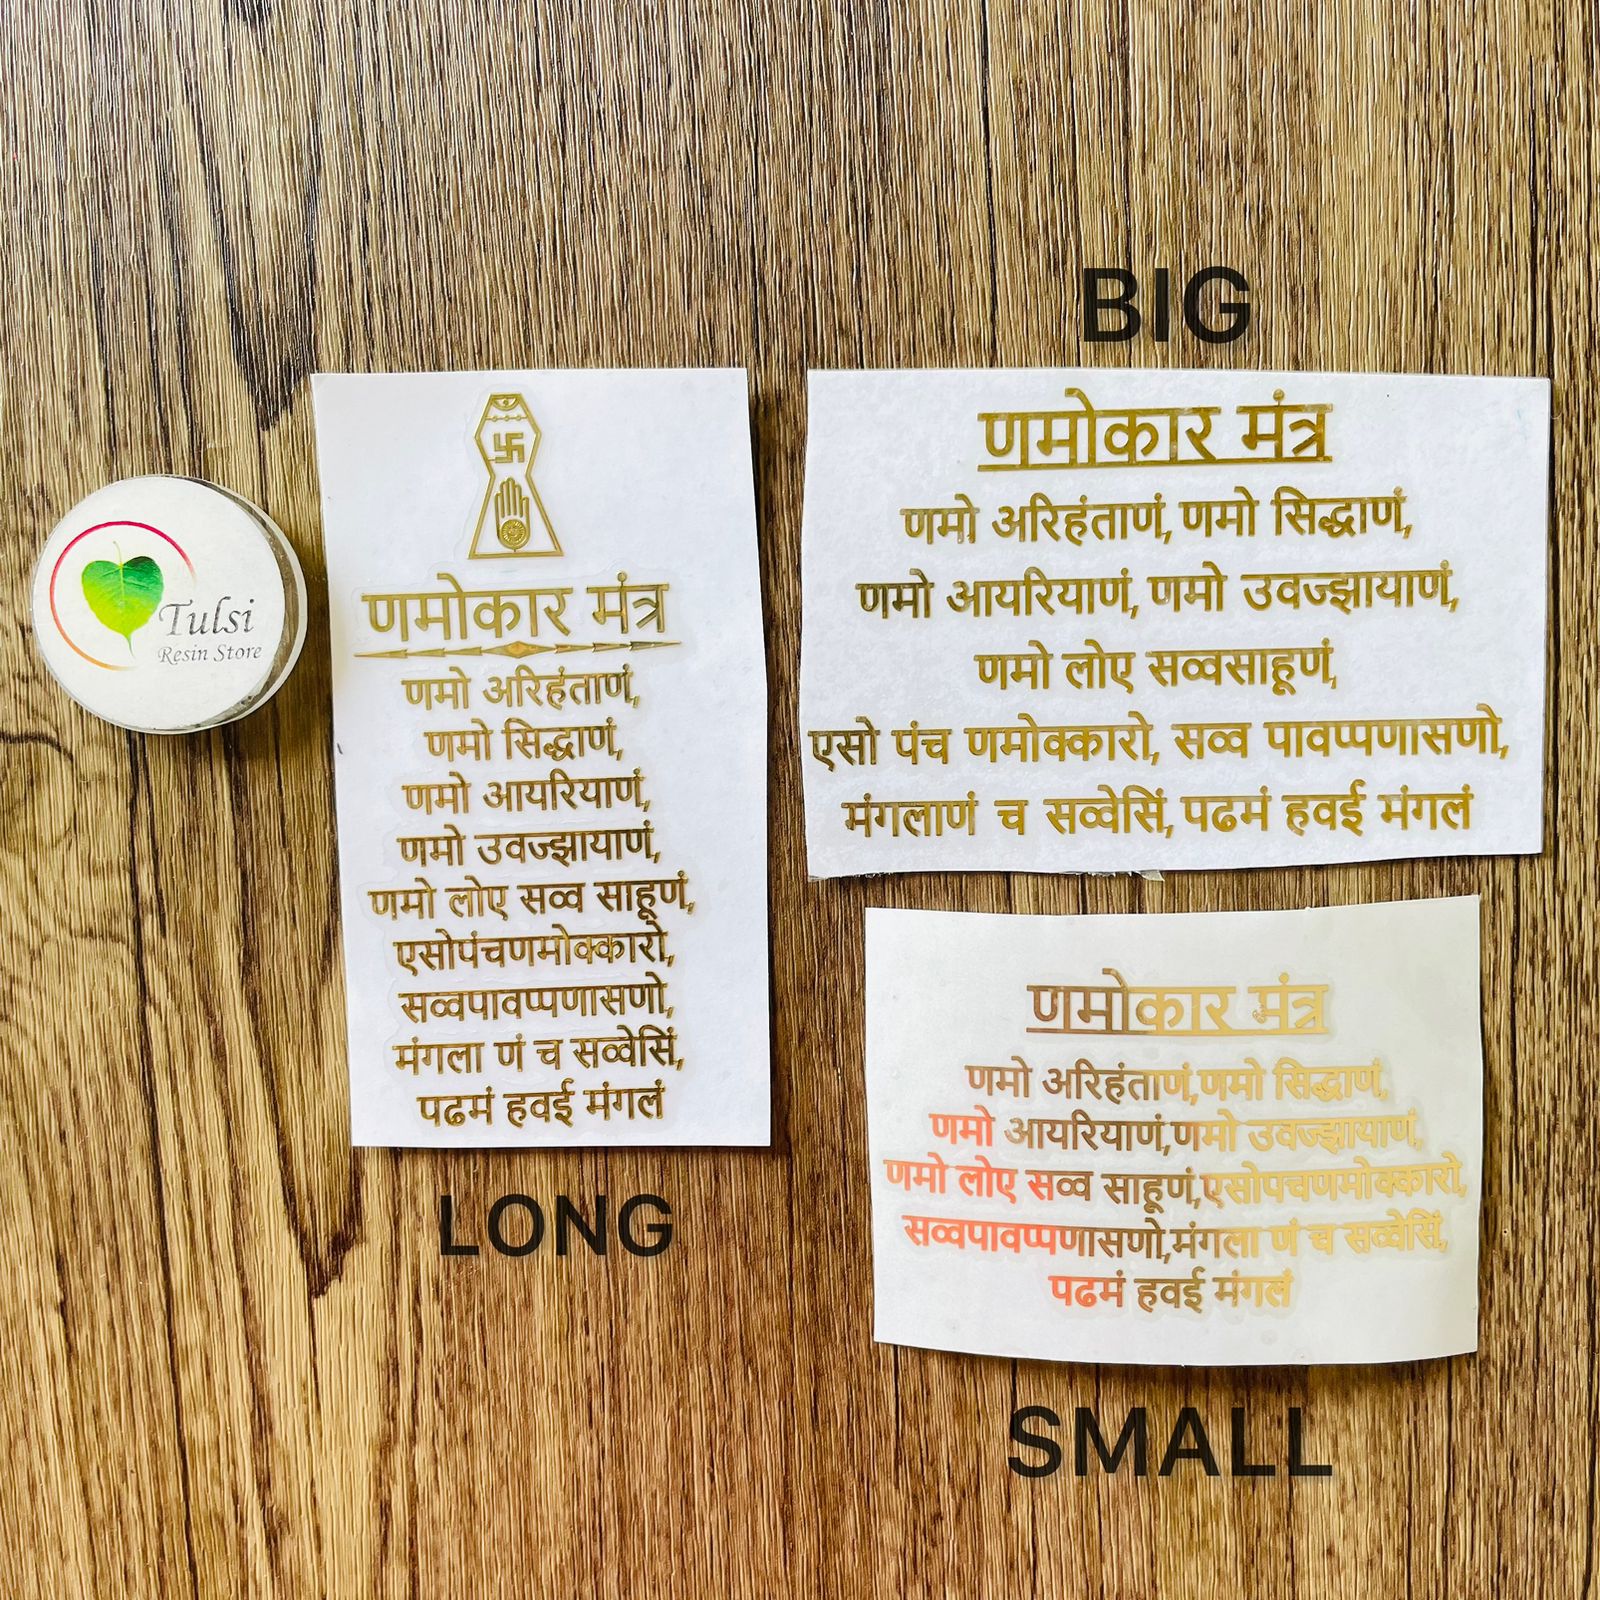 Tulsi
Resin Store
णमोकार मंत्र
णमो अरिहंताणं,
णमो सिद्धाणं,
णमो आयरियाणं,
णमो उवज्झायाणं,
णमो लोए सव्व साहूणं,
एसोपंचणमोक्कारो,
सव्वपावप्पणासणो,
मंगला णं च सव्वेसिं,
पढमं हवई मंगलं
LONG
BIG
णमोकार मंत्र
णमो अरिहंताणं, णमो सिद्धाणं,
णमो आयरियाणं, णमो उवज्झायाणं,
णमो लोए सव्वसाहूणं,
एसो पंच णमोक्कारो, सव्व पावप्पणासणो,
मंगलाणं च सव्वेसिं, पढमं हवई मंगलं
णमोकार मंत्र
णमो अरिहंताणं,णमो सिद्धाणं,
णमो आयरियाणं,णमो उवज्झायाणं,
णमो लोए सव्व साहूणं,एसोपंचणमोक्कारो,
सव्वपावप्पणासणो,मंगला णं च सव्वेसिं,
पढमं हवई मंगलं
SMALL